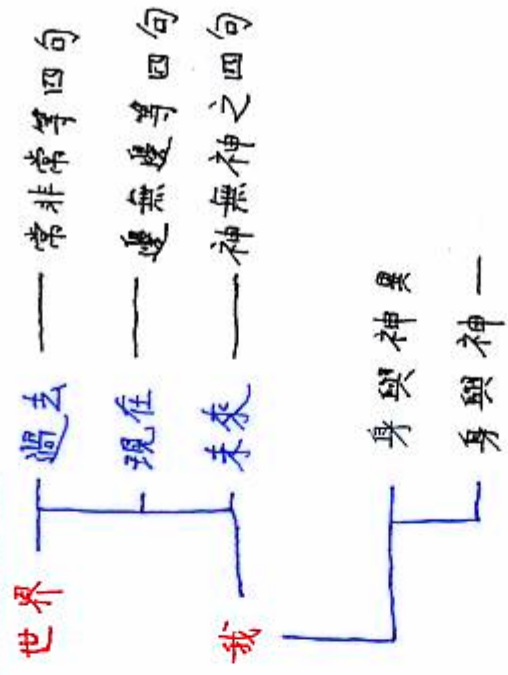 世界 過去 — 常非常等四句
現在 — 邊無邊等四句
我 未來 — 神無神之四句
身與神異
身與神一